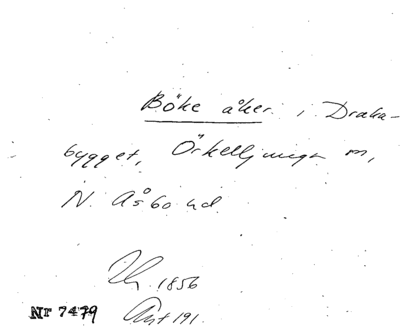 Böke åker i Draka-
bygget, Örkelljunga n,
N. Åsbo hd.
1856
Nr 7479 Ant 191.